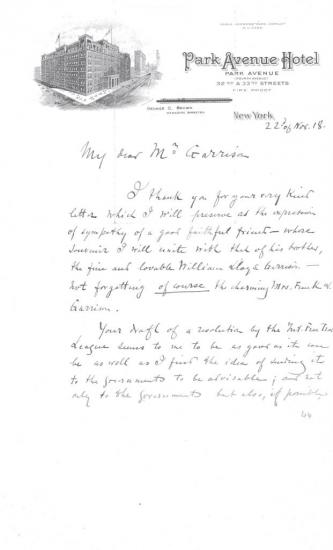 Park Avenue Hotel
PARK AVENUE
(FOURTH AVENUE)
32ND & 33RD STREETS
FIRE PROOF
GEORGE C. BROWN
MANAGING DIRECTOR
New York
22d of Nov. 18.
My dear Mr Garrison
I thank you for your very kind
letter which I will preserve as the expression
of sympathy of a good faithful friend - whose
souvenir I will unite with that of his brother,
the fine and lovable William Lloyd Garrison -
not forgetting of course the charming Mrs. Frank W.
Garrison.
Your draft of a resolution by the Int. Free Trade
League seems to me to be as good as it can
be as well as I find the idea of sending it
to the Governments to be advisable; and not
only to the Governments but also, if possible